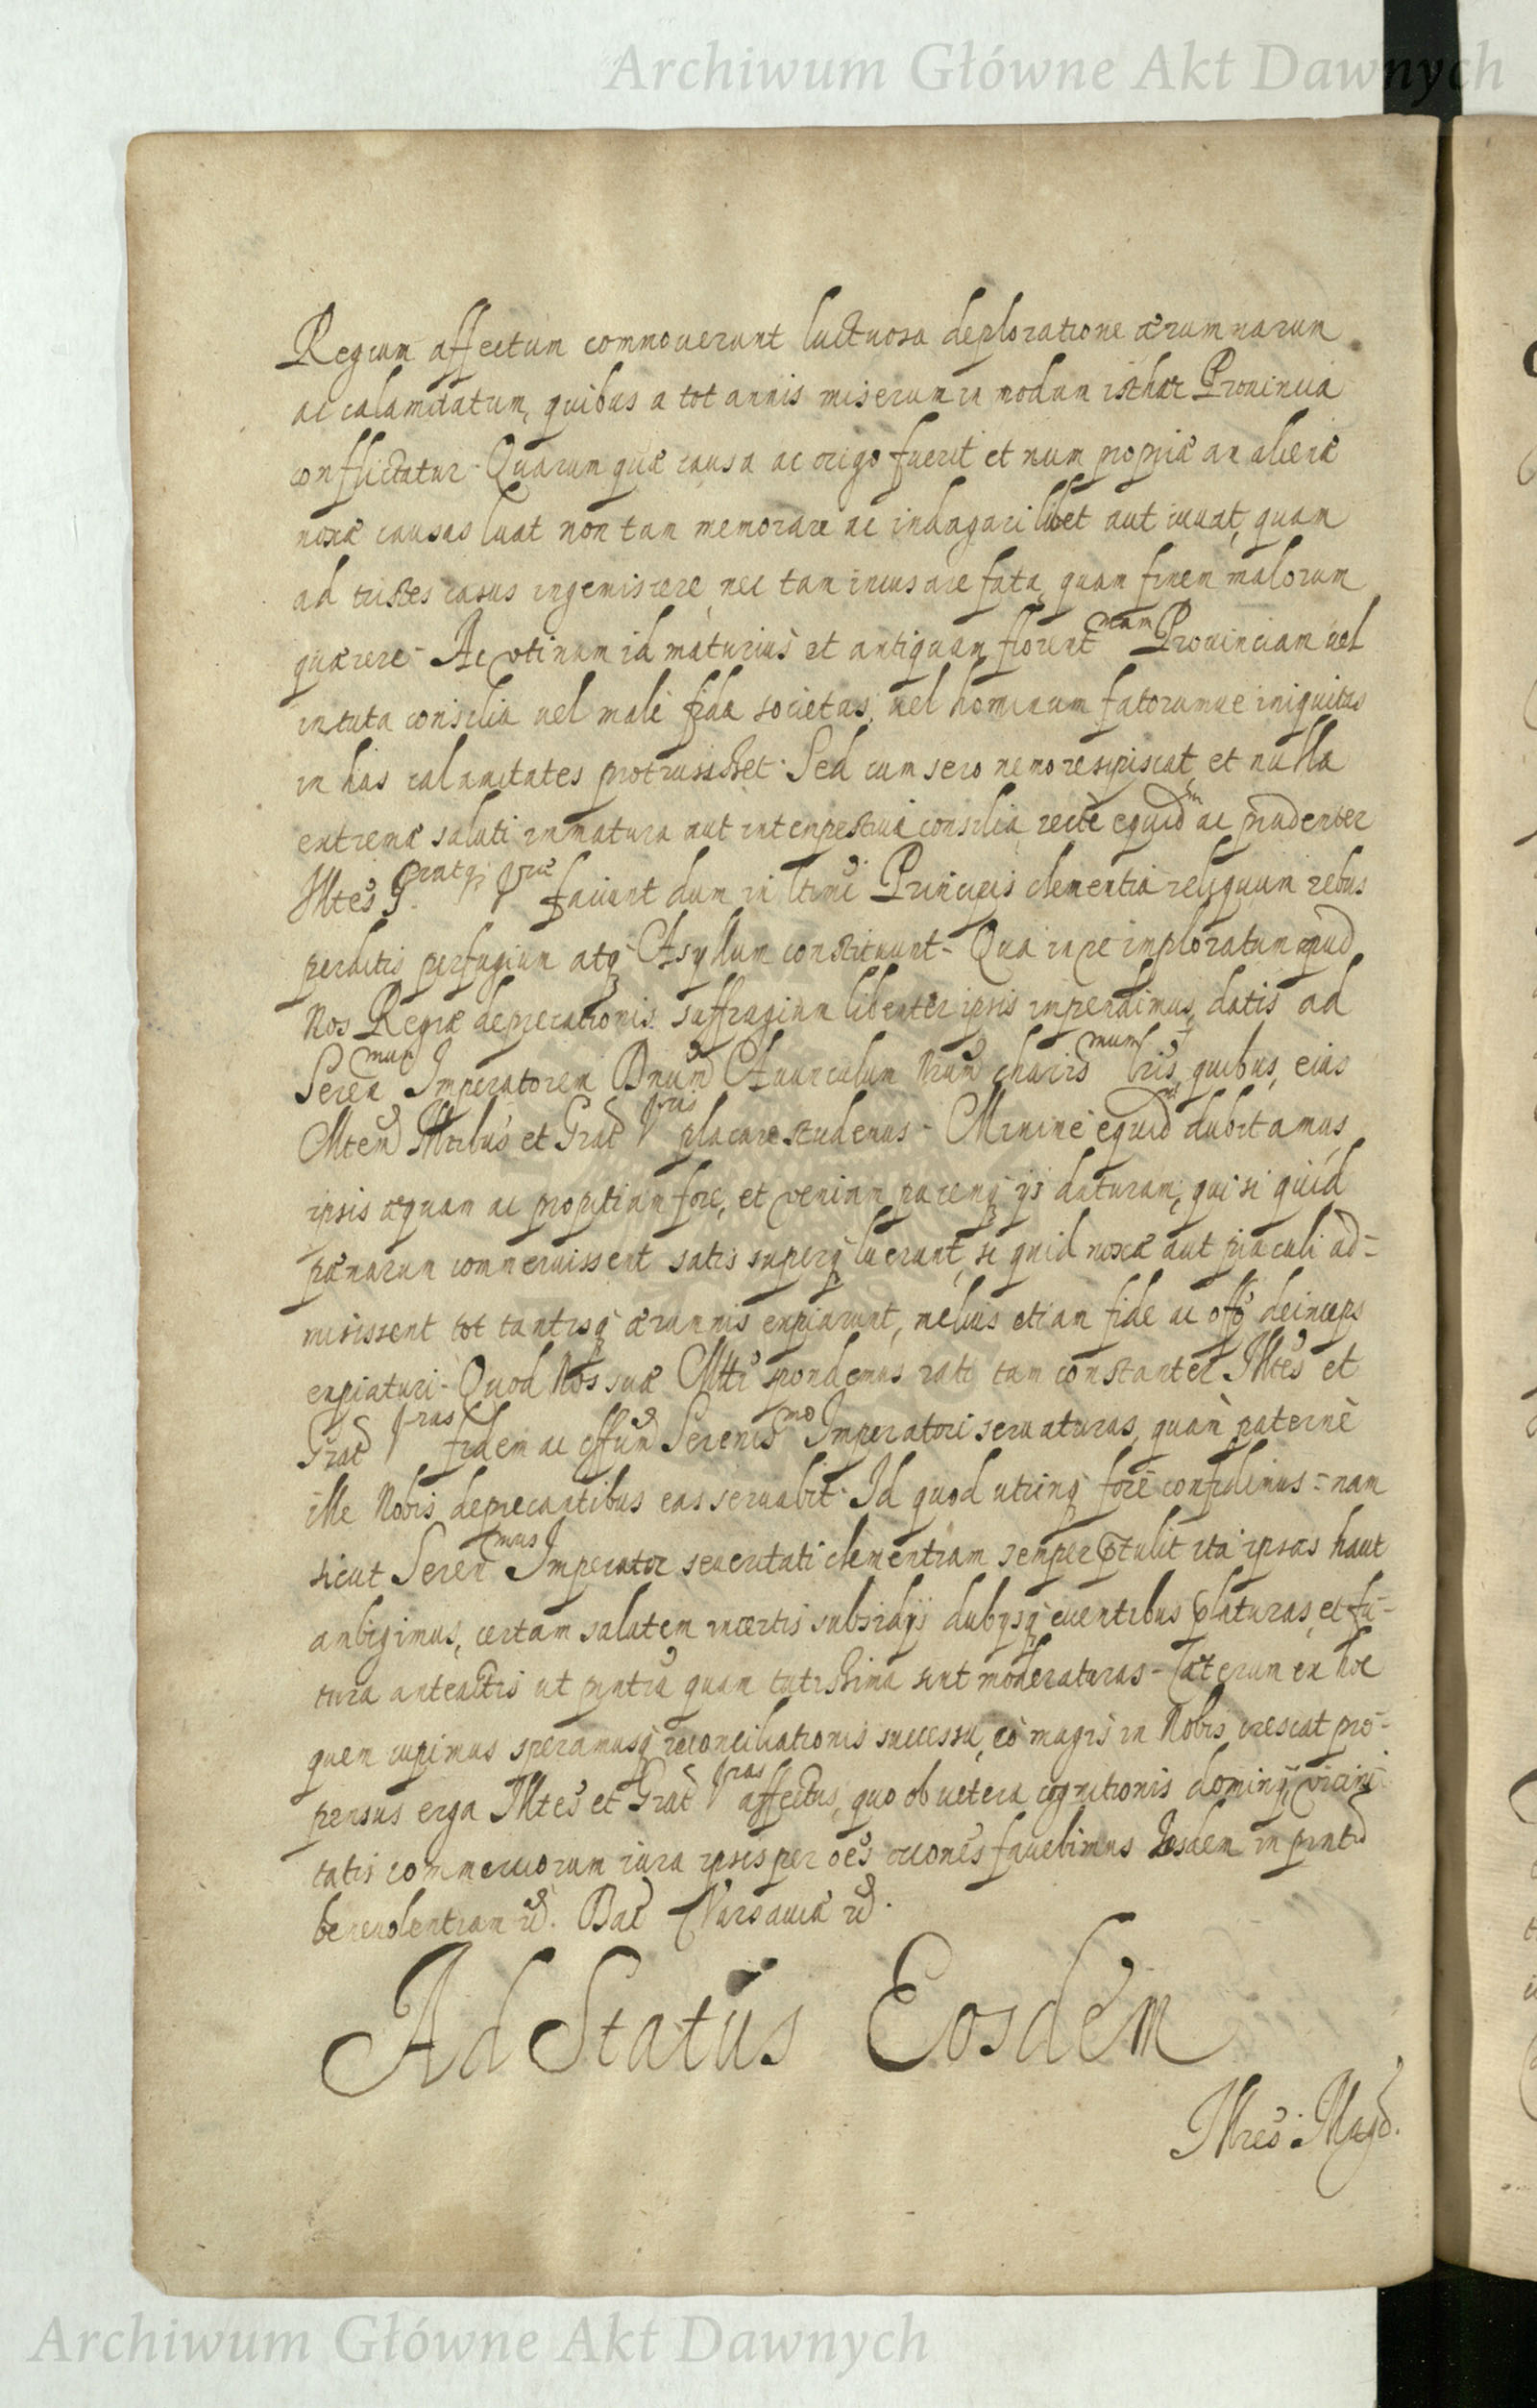 Archiwum Główne Akt Dawnych
Regium affectum commouerunt luctuosa deploratione ærumnarum
ac calamitatum, quibus a tot annis miserum in modum isthæc Prouincia
conflictatur. Quarum quæ causa ac origo fuerit et num propriæ an alienæ
noxæ causas luat non tam memorare ac indagari libet aut iuuat, quam
ad tristes casus ingemiscere, nec tam incusare fata, quam finem malorum
quærere. Ac vtinam id maturius et antiquam florent mam Prouinciam uel
intuta consilia uel malè fida societas, uel hominum fatorumue iniquitas
in has calamitates protrusisset. Sed cum sero nemo resipiscat, et nulla
extremæ saluti immatura aut intempestiua consilia, recte equid m ac prudenter
Illtes G ratq; Vræ faciunt dum in ltimi Principis clementia reliquum rebus
perditis perfugium atq; Asyllum constituunt. Qua in re imploratum apud
Nos Regiæ deprecationis suffragium libenter ipsis impendimus, datis ad
Seren mum Imperatorem Dnum Auunculum Nrum chariss mum lris, quibus, eius
Mtem Illtibus et Grat Vris placare studemus. Minime equid m dubitamus,
ipsis æquam ac propitiam fore, et veniam pacemq; ijs daturam, qui si quid
pænarum commeruissent satis superq; luerunt, si quid noxæ aut piaculi ad-
misissent tot tantisq; ærumnis expiarunt, melius etiam fide ac offo deinceps
expiaturi. Quod Nos suæ Mtti spondemus rati tam constanter Illtes et
Grat Vras fidem ac offum Serenis mo Imperatori seruaturas, quàm paternè
ille Nobis deprecantibus eas seruabit. Id quod utrinq; fore confidimus: nam
sicut Seren mus Imperator seueritati clementiam semper ptulit ita ipsas haut
ambigimus, certam salutem incertis subsidijs dubijsq; euentibus platuras, et fu-
tura anteactis ut pntia quam tutissima sint moderaturas. Cæterum ex hoc
quem cupimus speramusq; reconciliationis successu, eò magis in Nobis crescat pro-
pensus erga Illtes et Grat Vras affectus, quo ob uetera cognitionis dominij, vicini
tatis commerciorum iura ipsis per oes occiones fauebimus Iisdem in pntd
beneuolentiam etc. Dat Varsauiæ etc.
Ad Status Eosdem
Illres Magd.
Archiwum Główne Akt Dawnych